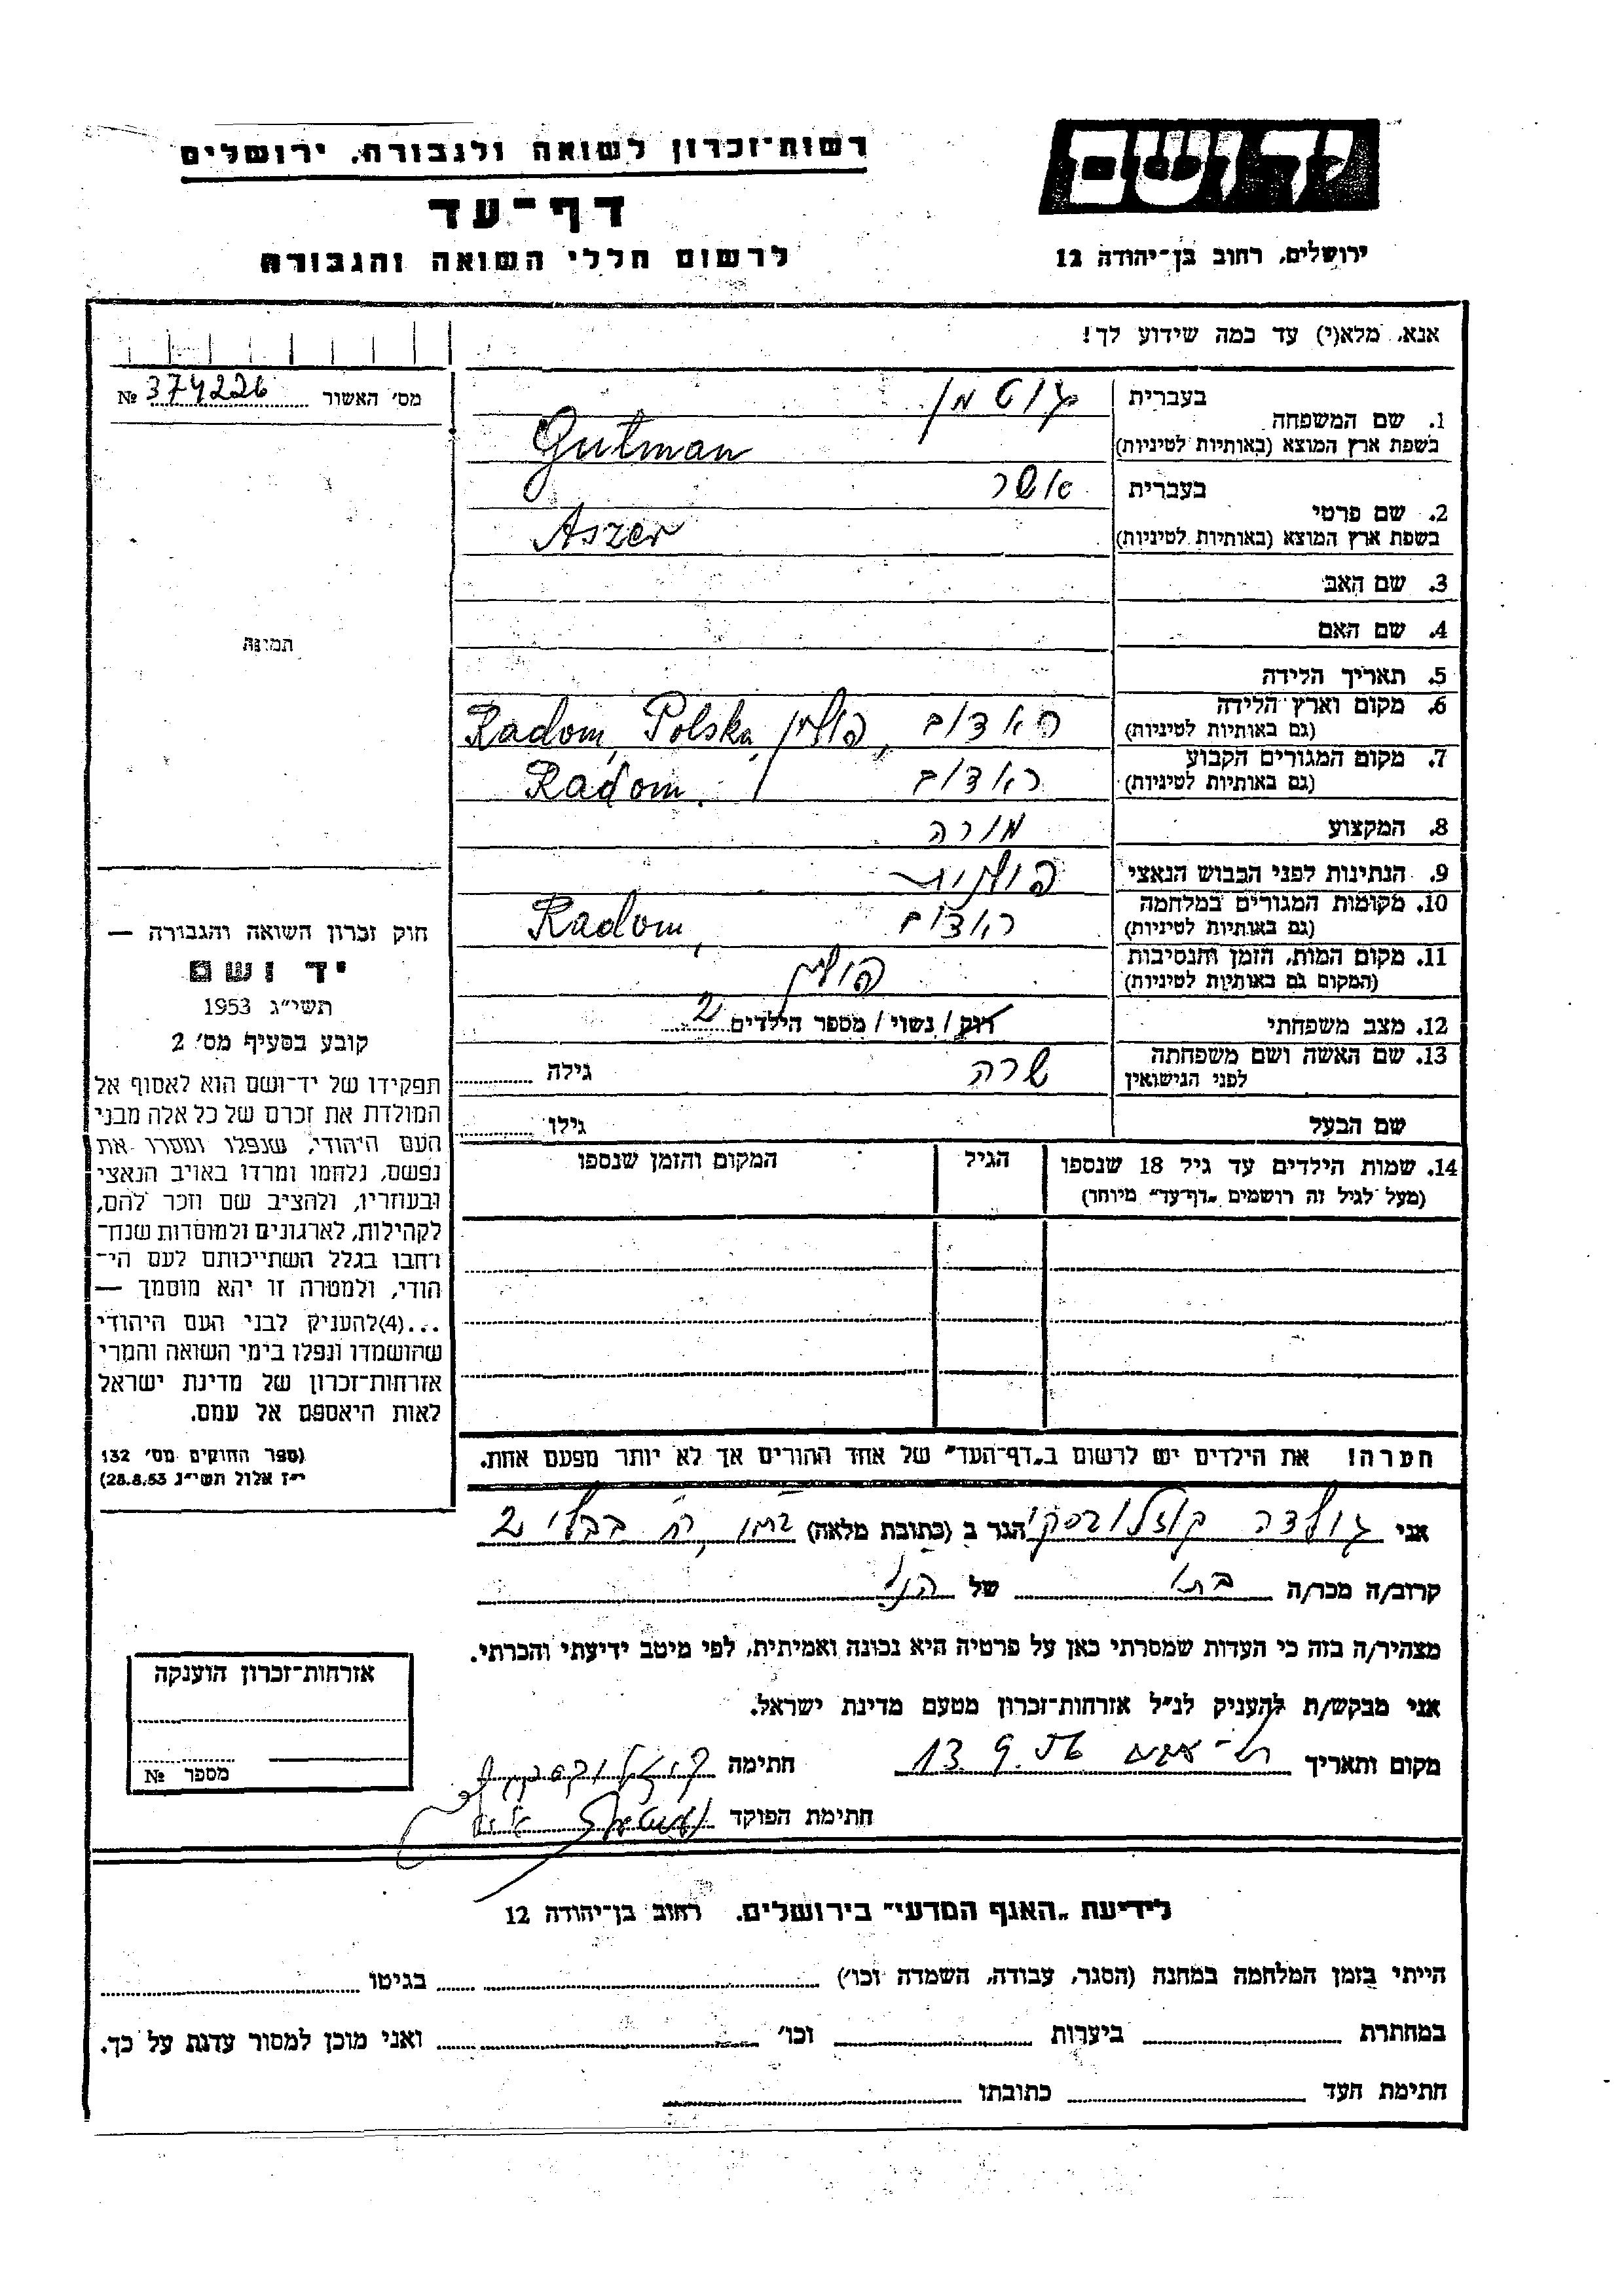 רשות־זכרון לשואה ולגבורה, ירושלים
דף־עד
לרשום חללי השואה והגבורה
יד ושם
ירושלים, רחוב בן־יהודה 12
אנא, מלא(י) עד כמה שידוע לך!
מס׳ האשור № 374226
תמונה
בעברית גוטמן
1. שם המשפחה
בשפת ארץ המוצא (באותיות לטיניות) Gutman
בעברית אשר
2. שם פרטי
בשפת ארץ המוצא (באותיות לטיניות) Aszer
3. שם האב
4. שם האם
5. תאריך הלידה
6. מקום וארץ הלידה ראדום, פולין, Radom, Polska
(גם באותיות לטיניות)
7. מקום המגורים הקבוע ראדום Radom
(גם באותיות לטיניות)
8. המקצוע מורה
9. הנתינות לפני הכבוש הנאצי פולנית
10. מקומות המגורים במלחמה ראדום Radom,
(גם באותיות לטיניות)
11. מקום המות, הזמן והנסיבות פולין
(המקום גם באותיות לטיניות)
12. מצב משפחתי רוק / נשוי / מספר הילדים 2
13. שם האשה ושם משפחתה שרה גילה
לפני הנישואין
שם הבעל גילו
14. שמות הילדים עד גיל 18 שנספו הגיל המקום והזמן שנספו
(מעל לגיל זה רושמים „דף־עד״ מיוחד)
הערה! את הילדים יש לרשום ב„דף־העד״ של אחד ההורים אך לא יותר מפעם אחת.
חוק זכרון השואה והגבורה —
יד ושם
תשי״ג 1953
קובע בסעיף מס׳ 2
תפקידו של יד־ושם הוא לאסוף אל
המולדת את זכרם של כל אלה מבני
העם היהודי, שנפלו ומסרו את
נפשם, נלחמו ומרדו באויב הנאצי
ובעוזריו, ולהציב שם וזכר להם,
לקהילות, לארגונים ולמוסדות שנח־
רבו בגלל השתייכותם לעם הי־
הודי, ולמטרה זו יהא מוסמך —
...(4) להעניק לבני העם היהודי
שהושמדו ונפלו בימי השואה והמרי
אזרחות־זכרון של מדינת ישראל
לאות היאספם אל עמם.
(ספר החוקים מס׳ 132
י״ז אלול תשי״ג 28.8.53)
אני גולדה קוזלובסקי הגר ב (כתובת מלאה) רח׳ בבלי 2
קרוב/ה מכר/ה של הנ״ל
מצהיר/ה בזה כי העדות שמסרתי כאן על פרטיה היא נכונה ואמיתית, לפי מיטב ידיעתי והכרתי.
אני מבקש/ת להעניק לנ״ל אזרחות־זכרון מטעם מדינת ישראל.
מקום ותאריך 13.9.56 חתימה
חתימת הפוקד
אזרחות־זכרון הוענקה
מספר №
לידיעת „האגף המדעי״ בירושלים. רחוב בן־יהודה 12
הייתי בזמן המלחמה במחנה (הסגר, עבודה, השמדה וכו׳) בגיטו
במחתרת ביערות וכו׳ ואני מוכן למסור עדות על כך.
חתימת העד כתובתו